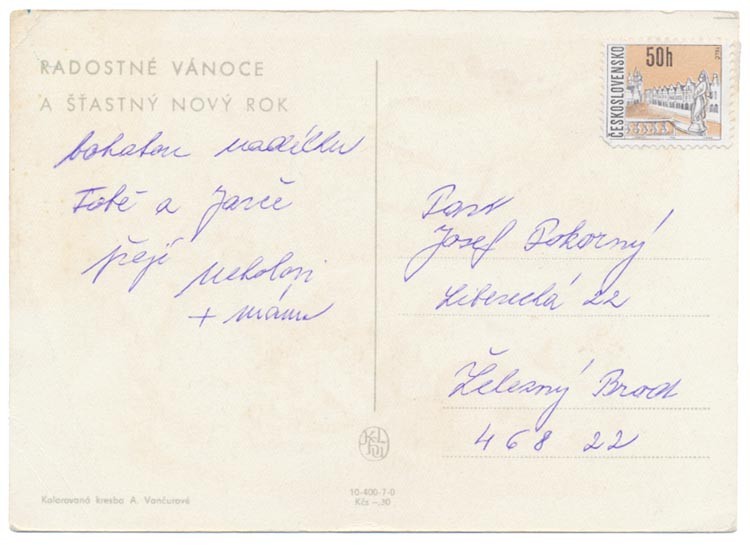 RADOSTNÉ VÁNOCE
A ŠŤASTNÝ NOVÝ ROK
bohatou nadílku
Tobě a Jarče
přejí
+ máma
ČESKOSLOVENSKO
50h
TELČ
Pan
Josef Pokorný
Liberecká 22
Železný Brod
468 22
Kolorovaná kresba A. Vančurové
10-400-7-0
Kčs –,30